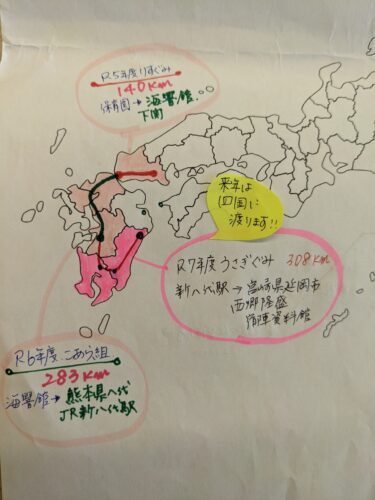 R5年度りすぐみ
140Km
保育園→海響館
下関
来年は
四国に
渡ります!!
R7年度 うさぎぐみ 308km
新八代駅→宮崎県延岡市
西郷隆盛
資料館
R6年度 こあら組
283Km
海響館→熊本県八代
JR新八代駅